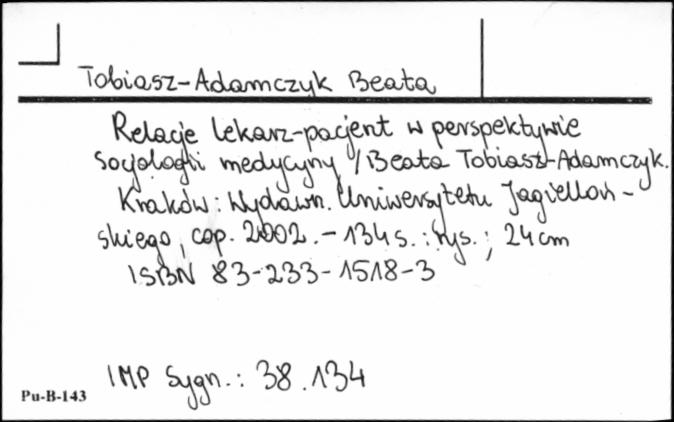 Tobiasz-Adamczyk Beata
Relacje lekarz-pacjent w perspektywie
socjologii medycyny / Beata Tobiasz-Adamczyk.
Kraków : Wydawn. Uniwersytetu Jagielloń-
skiego, cop. 2002. - 134 s. : rys. ; 24 cm
ISBN 83-233-1518-3
IMP Sygn.: 38.134
Pu-B-143